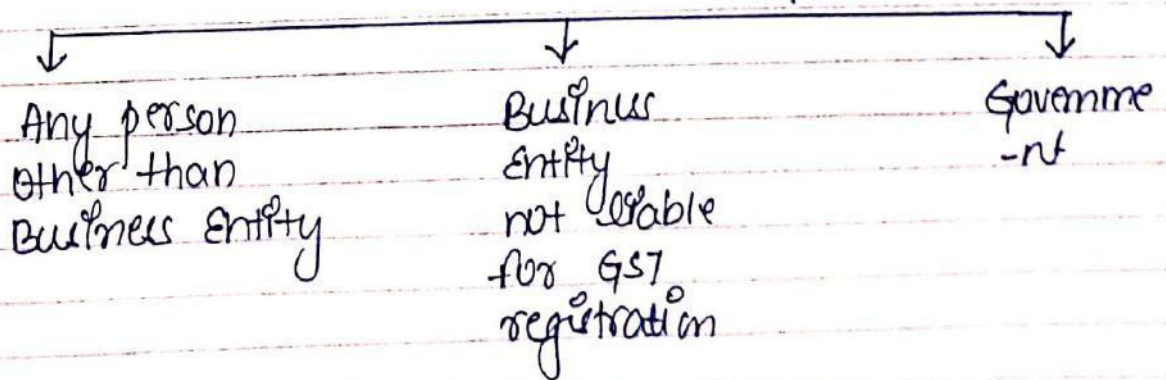 Any person
other than
Business Entity
Business
Entity
not liable
for GST
registration
Governme
-nt